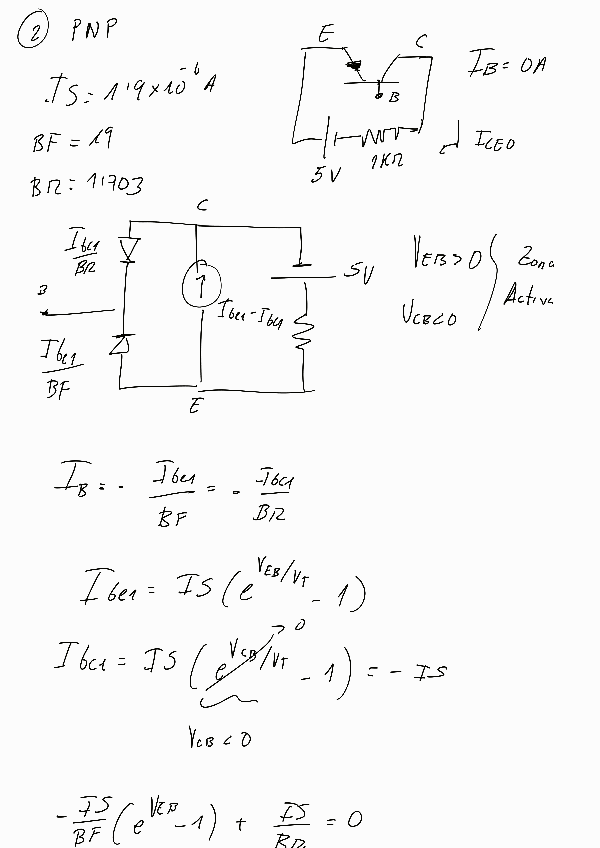 ② PNP
IS = 1'9×10^-6 A
BF = 19
BR = 1'703
E C
B
5V 1KΩ
I_B = 0A
I_CEO
C
I_bc1/BR
B
I_be1/BF
I_be1 - I_bc1
5V
E
V_EB > 0
V_CB < 0
Zona
Activa
I_B = - I_be1/BF = - I_bc1/BR
I_be1 = IS (e^(V_EB/V_T) - 1)
I_bc1 = IS (e^(V_CB/V_T) - 1) = - IS
→ 0
V_CB < 0
- IS/BF (e^(V_EB) - 1) + IS/BR = 0